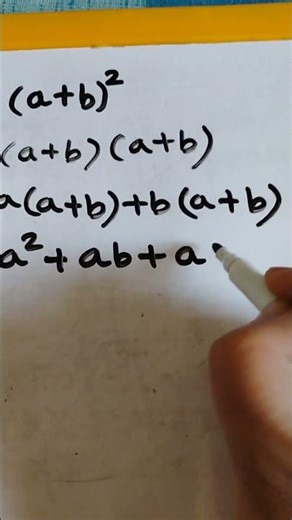 (a+b)²
(a+b)(a+b)
a(a+b)+b(a+b)
a²+ab+a